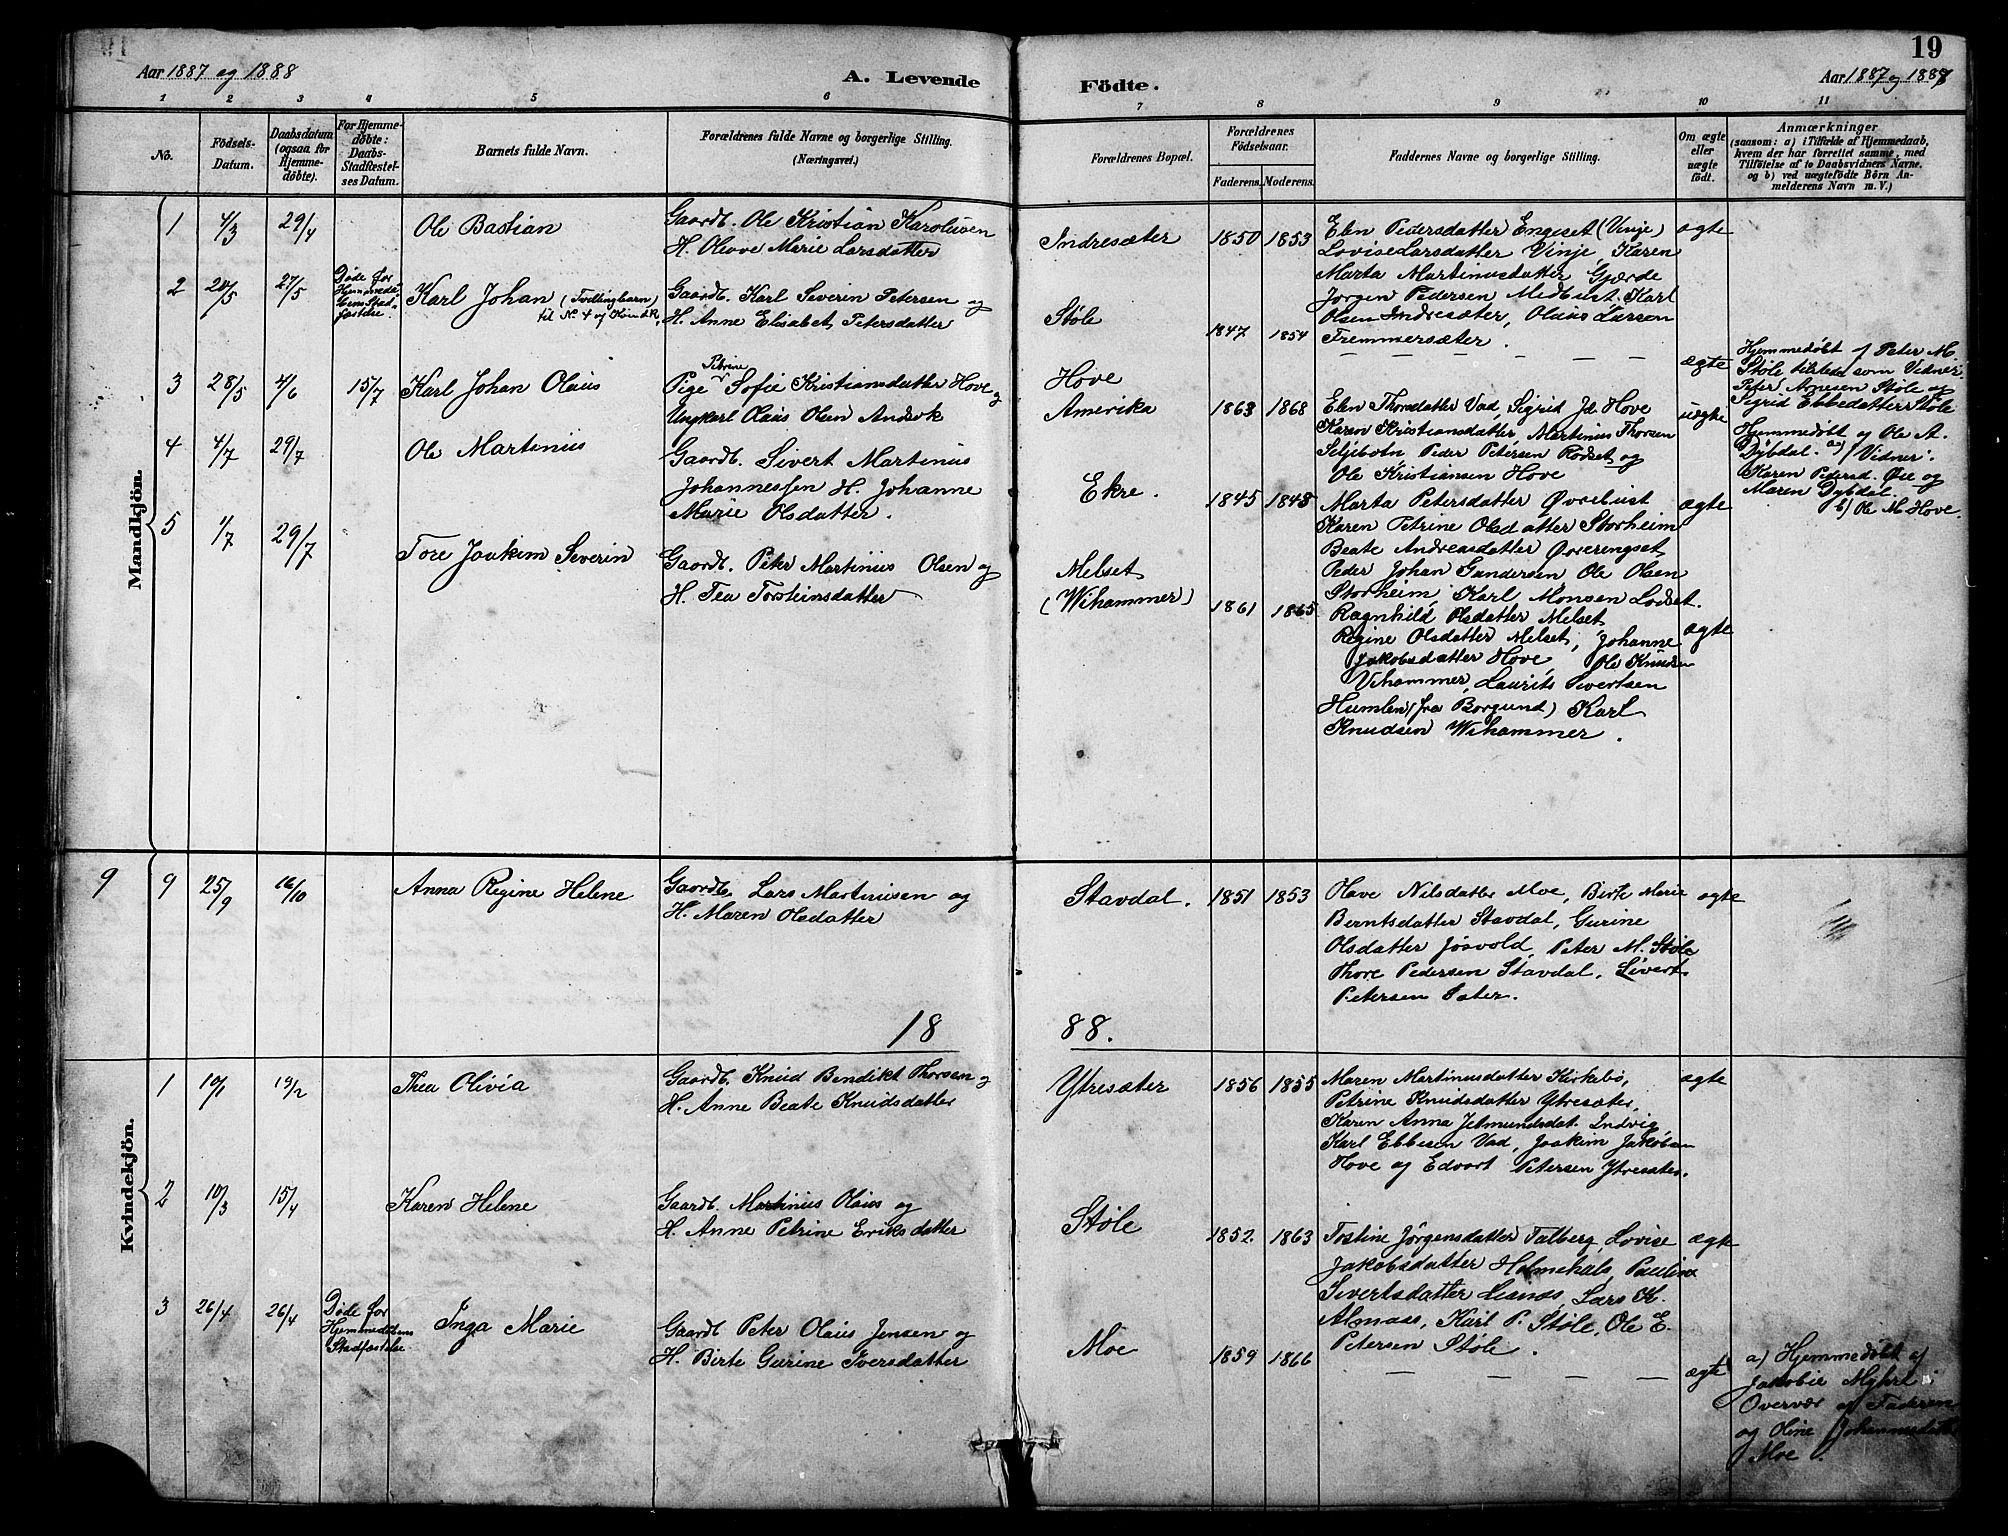 19
Aar 1887 og 1888
A. Levende
Födte.
Aar 1887 og 1887
1 2 3 4 5 6 7 8 9 10 11
No.
Födsels-
Datum.
Daabsdatum
(ogsaa for
Hjemme-
döbte).
For Hjemme-
döbte:
Daabs-
Stadfæstel-
ses Datum.
Barnets fulde Navn.
Forældrenes fulde Navne og borgerlige Stilling.
(Næringsvei.)
Forældrenes Bopæl.
Forældrenes
Födselsaar.
Faderens. Moderens.
Faddernes Navne og borgerlige Stilling.
Om ægte
eller
uægte
födt.
Anmærkninger
(saasom: a) i Tilfælde af Hjemmedaab,
hvem der har forrettet samme, med
Tilföielse af to Daabsvidners Navne.
og b) ved uægtefödte Börn An-
melderens Navn m. V.)
Mandkjön.
1 4/3 29/4
Ole Bastian
Gaardb. Ole Kristian Karolusen
H. Olave Marie Larsdatter
Indresæter
1850 1853
Elen Pedersdatter Engeset (Vinje)
Lovise Larsdatter Vinje, Karen
Marta Martinusdatter Gjærde
Jørgen Pedersen Medbust. Karl
Olsen Indresæter, Olaus Larsen
Fremmersæter.
ægte
2 20/5 27/5
Døde før
Hjemmedø
bens Stad
fæstelse
Karl Johan (Tvillingbarn)
til No. 4 af Kvindk.
Gaardb. Karl Severin Petersen og
H. Anne Elisabet Petersdatter
Støle
1847 1854
ægte
Hjemmedøbt af Peter M.
Støle tilstede som Vidner
Peter Arnesen Støle og
Sigrid Ebbedatter Støle
3 28/5 4/6 15/7
Karl Johan Olaus
Petrine
Pige Sofie Kristiansdatter Hove og
Ungkarl Olaus Olsen Andvk
Hove
Amerika
1863 1868
Elen Thoresdatter Vad, Sigrid Jd. Hove
Karen Kristiansdatter, Martinus Thorsen
Seljebotn Peder Petersen Rødset og
Ole Kristiansen Hove
uægte
Hjemmedøbt af Ole A.
Dybdal. a) Vidner:
Karen Pedersd. Øie og
Maren Dybdal.
b) Ole M. Hove.
4 4/7 29/7
Ole Martinus
Gaardb. Sivert Martinus
Johannessen H. Johanne
Marie Olsdatter.
Ekre.
1845 1848
Marta Petersdatter Øvrebust
Karen Petrine Olsdatter Storheim
Beate Andreasdatter Øvreringset
Peder Johan Gundersen Ole Olsen
Storheim Karl Monsen Lodset.
ægte
5 1/7 29/7
Tore Joakim Severin
Gaardb. Peter Martinus Olsen og
H. Tea Torsteinsdatter
Melset
(Wihammer)
1861 1865
Ragnhild Olsdatter Melset
Regine Olsdatter Melset, Johanne
Jakobsdatter Hove, Ole Knudsen
Vihammer, Laurits Sivertsen
Humlen (fra Borgund) Karl
Knudsen Wihammer.
ægte
9 9 25/9 16/10
Anna Regine Helene
Gaardb. Lars Martinusen og
H. Maren Olsdatter
Stavdal.
1851 1853
Olave Nilsdatter Moe, Birte Marie
Berntsdatter Stavdal, Gurine
Olsdatter Jøsvold, Peter M. Støle
Thore Pedersen Stavdal, Sivert
Petersen Sæter.
ægte
18 88.
Kvindekjön.
1 10/1 19/2
Thea Olivia
Gaardb. Knud Bendikt Thorsen og
H. Anne Beate Knudsdatter
Ytresæter
1856 1855
Maren Martinusdatter Kirkebø,
Petrine Knudsdatter Ytresæter,
Karen Anna Jetmundsdat. Indvig
Karl Ebbesen Vad, Joakim Jakobsen
Hove og Edvart Petersen Ytresæter.
ægte
2 10/3 15/4
Karen Helene
Gaardb. Martinius Olaus og
H. Anne Petrine Eriksdatter
Støle
1852. 1863
Tostine Jørgensdatter Talberg, Lovise
Jakobsdatter Holmehals, Pauline
Sivertsdatter Leanes, Lars K.
Almaas, Karl P. Støle, Ole E.
Petersen Støle.
ægte
3 26/4 26/4
Døde før
Hjemmedøbens
Stadfæstelse
Inga Marie
Gaardb Peter Olaus Jensen og
H. Birte Gurine Iversdatter
Moe
1859 1866
ægte
a) Hjemmedøbt af
Jakobie Myhre i
Overvær af Faderen
og Oline Johannesdatter
Moe.